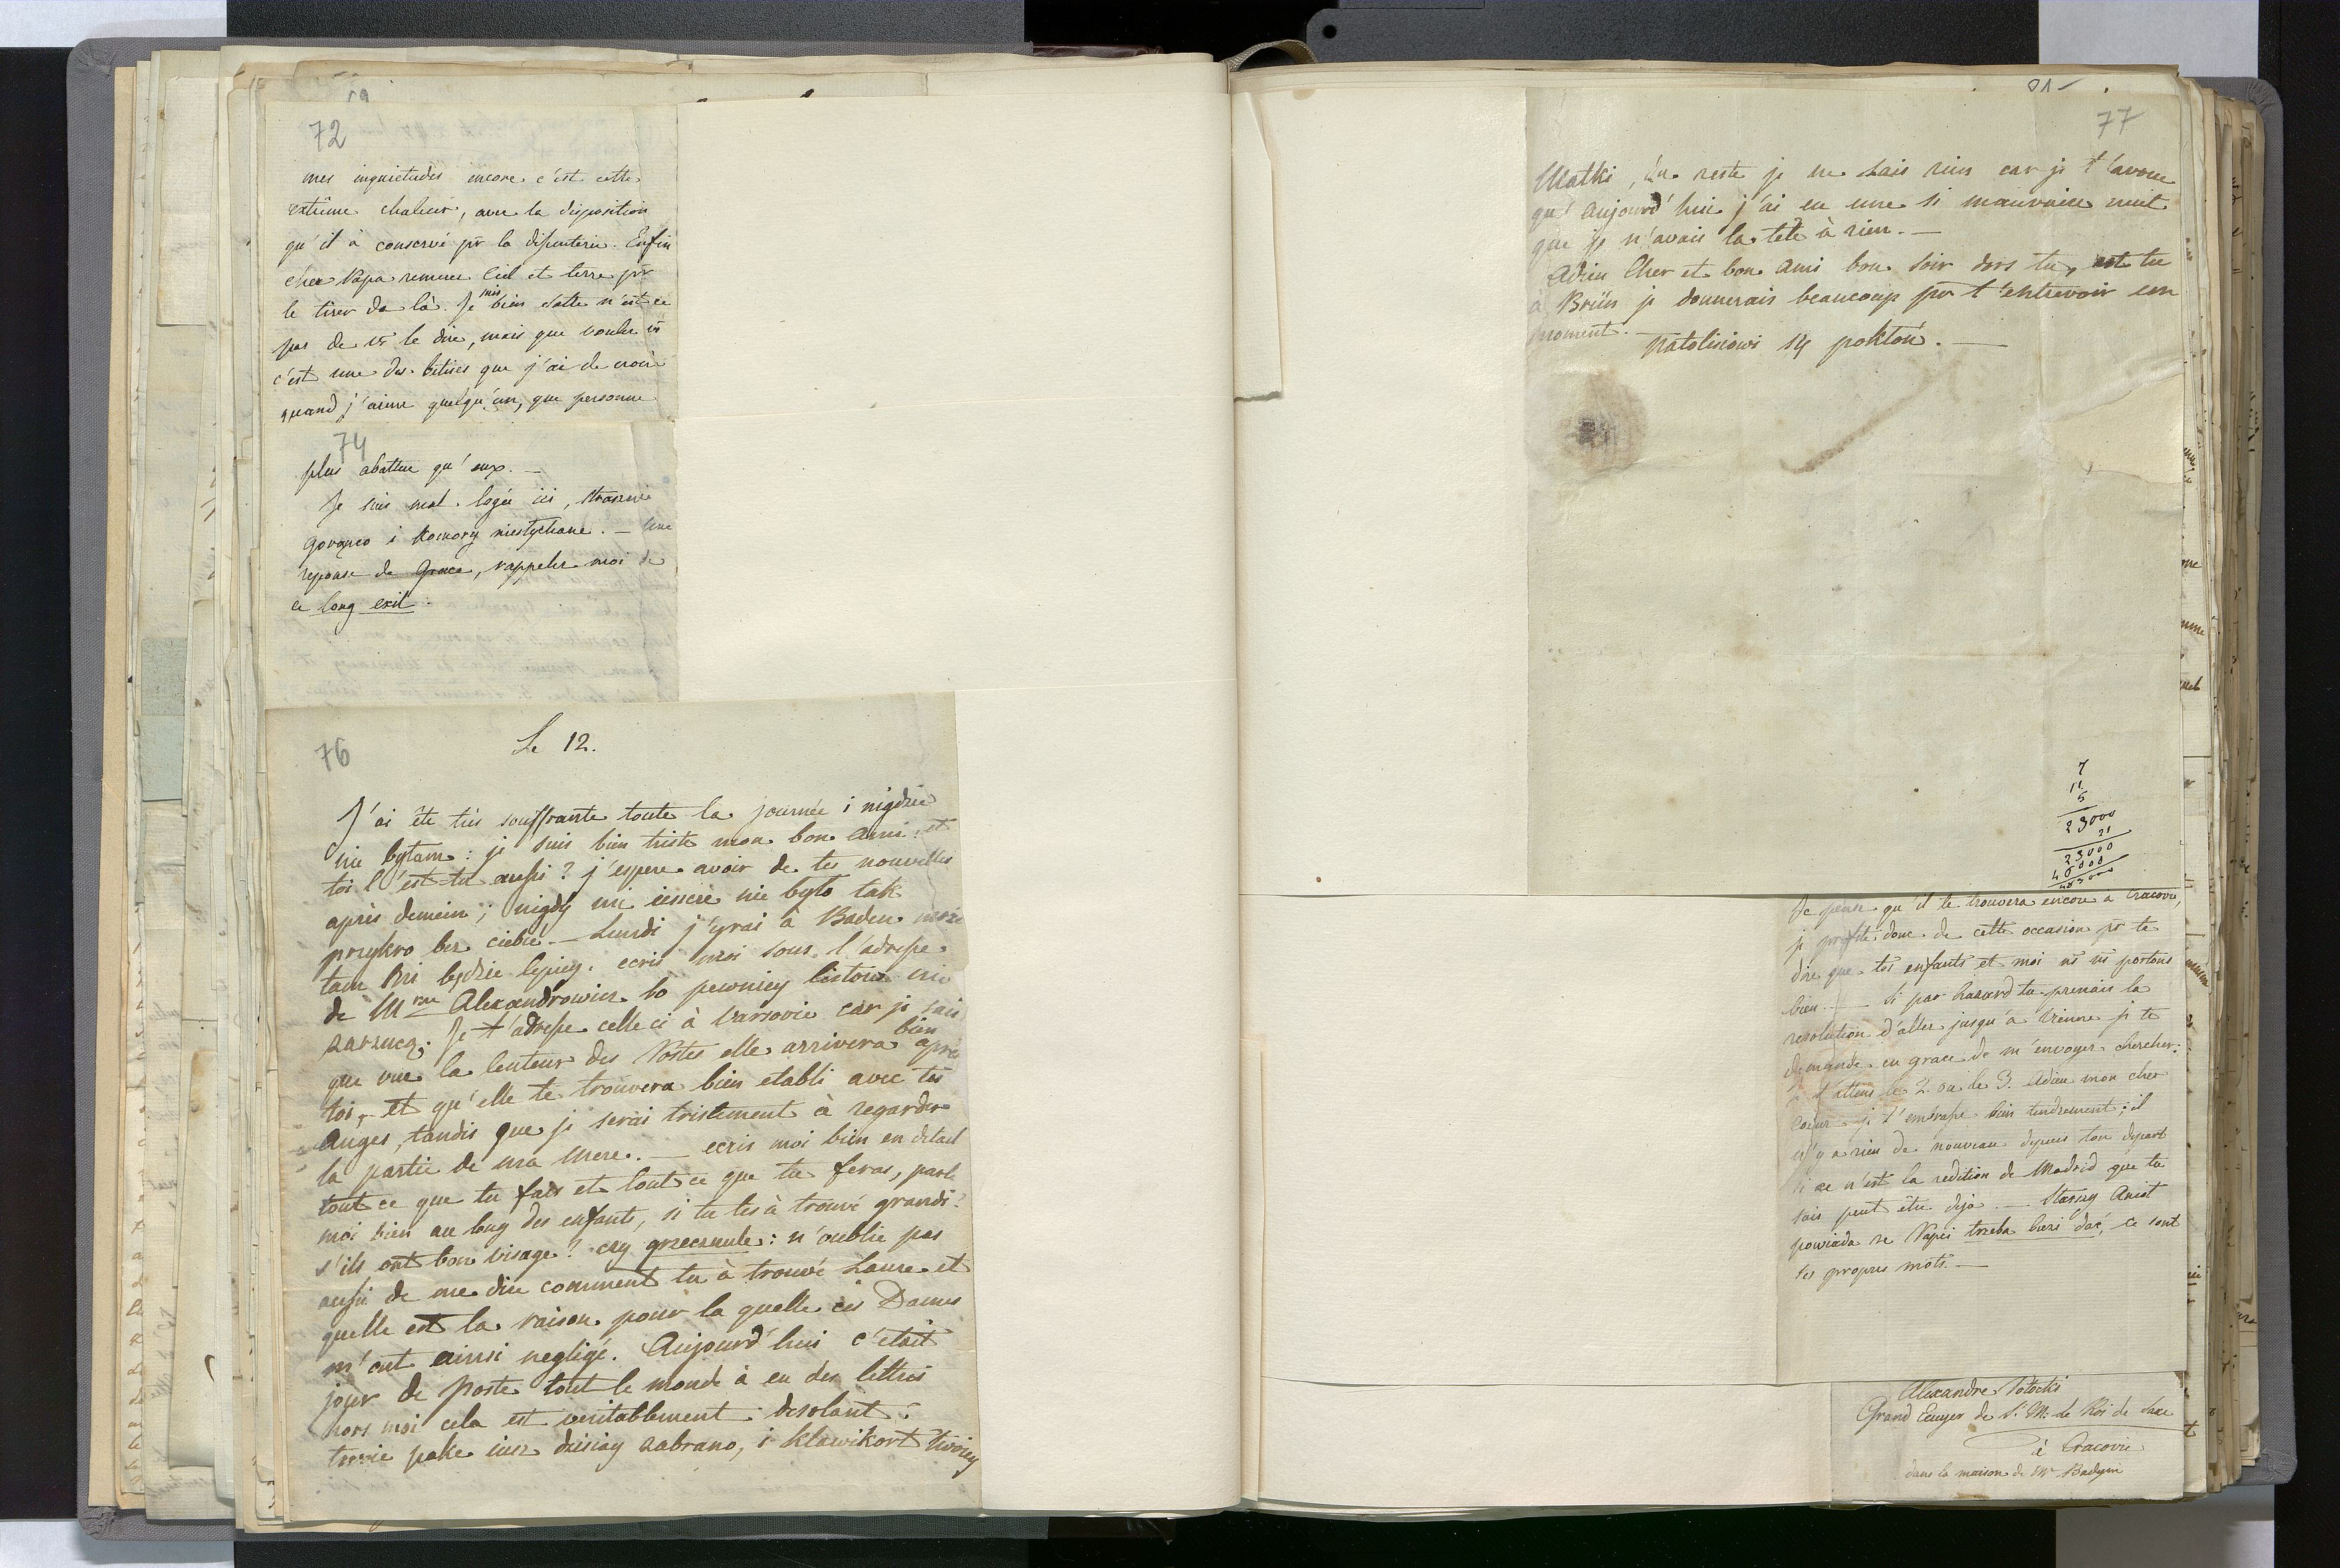 72
mes inquietudes encore c'est cette
extrême chaleur, avec la disposition
qu'il à conservé pr la disenterie. Enfin
cher Papa remuez Ciel et terre pr
le tirer de là. Je mis bien sotte n'est ce
pas de vs le dire, mais que voulez vs
c'est une des betises que j'ai de croire
quand j'aime quelqu'un, que personne
74
plus abattue qu'eux. —
Je suis mal logée ici, strasznie
gorąco i komory niesłychane. — Une
reponse de Grace, rappelez moi de
ce long exil.
76
Le 12.
J'ai été très souffrante toute la journée i nigdzie
nie byłam: je suis bien triste mon bon Ami: et
toi l'est-tu aussi? j'espere avoir de tes nouvelles
après demein; nigdy mi ieszcze nie było tak
przykro bez ciebie. — Lundi j'yrai à Baden może
tam mi będzie lepiey. ecris moi sous l'adresse
de Mme Alexandrowicz bo pewniey listow nie
zarzucą. Je t'adresse celle ci à Varsovie car je sais
que vue la lenteur des Postes elle arrivera bien après
toi, et qu'elle te trouvera bien etabli avec tes
Anges, tandis que je serai tristement à regarder
la partie de ma Mere. — ecris moi bien en detail
tout ce que tu fais et tout ce que tu feras, parle
moi bien au long des enfants, si tu les à trouvé grandi?
s'ils ont bon visage? czy grzecznule: n'oublie pas
aussi de me dire comment tu à trouvé Laure et
quelle est la raison pour la quelle ces Dames
m'ont ainsi negligé. Aujourd'hui c'etait
jour de Poste tout le monde à eu des lettres
hors moi cela est veritablement desolant:
pake iusz dzisiay zabrano, i klawikort twoiey
77
Matki, du reste je ne sais rien car je t'avoue
qu'Aujourd'hui j'ai eu une si mauvaise nuit
que je n'avais la tête à rien. —
Adieu Cher et bon Ami bon soir dors tu, est tu
à Brün je donnerais beaucoup pr t'entrevoir un
moment.
Natolinowi sy pokłoń. —
7
11
5
23000
21
23000
Je pense qu'il te trouvera encore à Cracovie,
je profite donc de cette occasion pr te
dire que tes enfants et moi ns ns portons
bien. — Si par hazard tu prenais la
resolution d'aller jusqu'a Vienne je te
demande en grace de m'envoyer chercher:
je t'attens le 2 ou le 3. Adieu mon cher
Coeur je t'embrasse bien tendrement; il
n'y a rien de nouveau depuis ton depart
si ce n'est la redition de Madrid que tu
sais peut être deja. — Starszy Aniot
powiada ze Papci trzeba buzi dać, ce sont
ses propres mots. —
Alexandre Potocki
Grand Ecuyer de S: M: le Roi de Saxe
à Cracovie
dans la maison de Mr Badyni